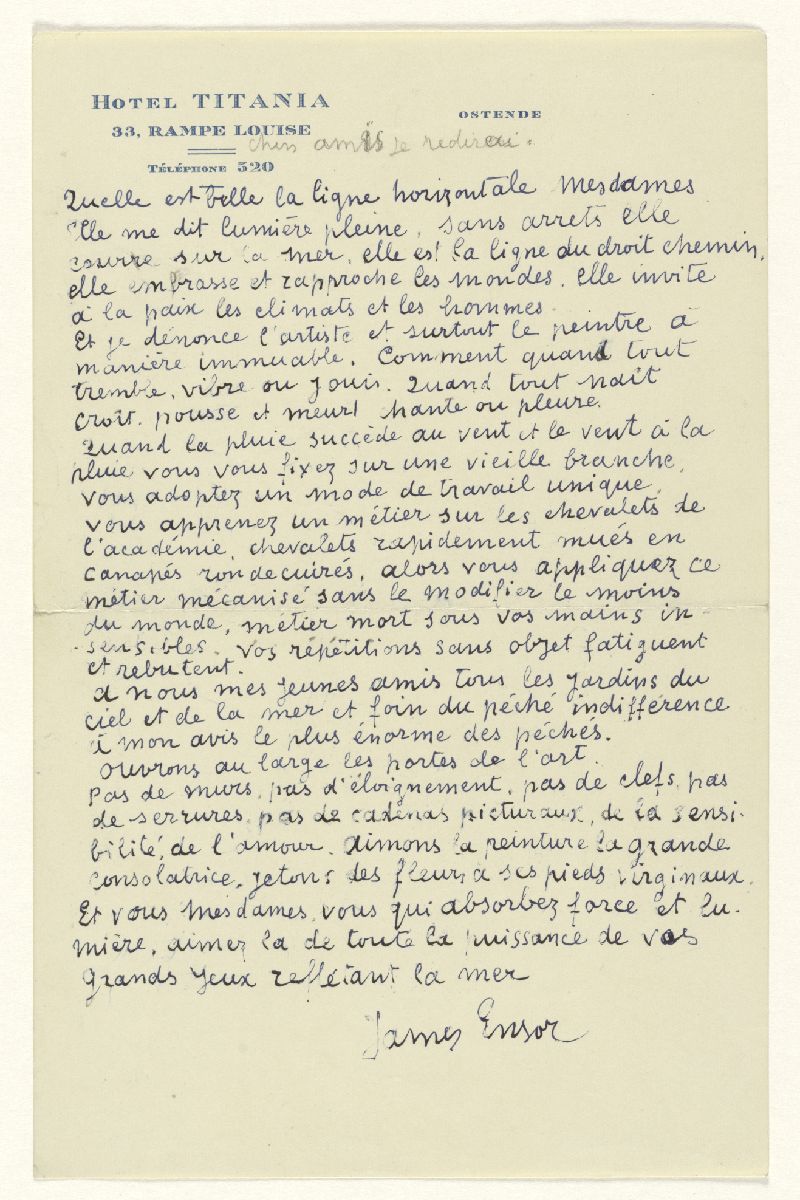 HOTEL TITANIA
33, RAMPE LOUISE
OSTENDE
TÉLÉPHONE 520
chers amis je redirai.
Quelle est belle la ligne horizontale Mesdames
Elle me dit lumière pleine, sans arrets elle
courre sur la mer, elle est la ligne du droit chemin,
elle embrasse et rapproche les mondes, elle invite
à la paix les climats et les hommes.
Et je dénonce l'artiste et surtout le peintre à
manière immuable. Comment quand tout
tremble, vibre ou jouis. Quand tout nait
croit, pousse et meurt chante ou pleure.
Quand la pluie succède au vent et le vent à la
pluie vous vous fixez sur une vieille branche,
vous adoptez un mode de travail unique,
vous apprenez un métier sur les chevalets de
l'académie, chevalets rapidement mués en
canapés rondecuirés, alors vous appliquez ce
métier mécanisé sans le modifier le moins
du monde, métier mort sous vos mains in-
sensibles. Vos répétitions sans objet fatiguent
et rebutent.
A nous mes jeunes amis tous les jardins du
ciel et de la mer et foin du péché indifférence
à mon avis le plus énorme des péchés.
Ouvrons au large les portes de l'art.
Pas de murs, pas d'éloignement, pas de clefs, pas
de serrures, pas de cadenas picturaux, de la sensi-
bilité, de l'amour. Aimons la peinture la grande
consolatrice, jetons des fleurs à ses pieds virginaux.
Et vous Mesdames, vous qui absorbez force et lu-
mière, aimez la de toute la puissance de vos
grands yeux reflétant la mer
James Ensor